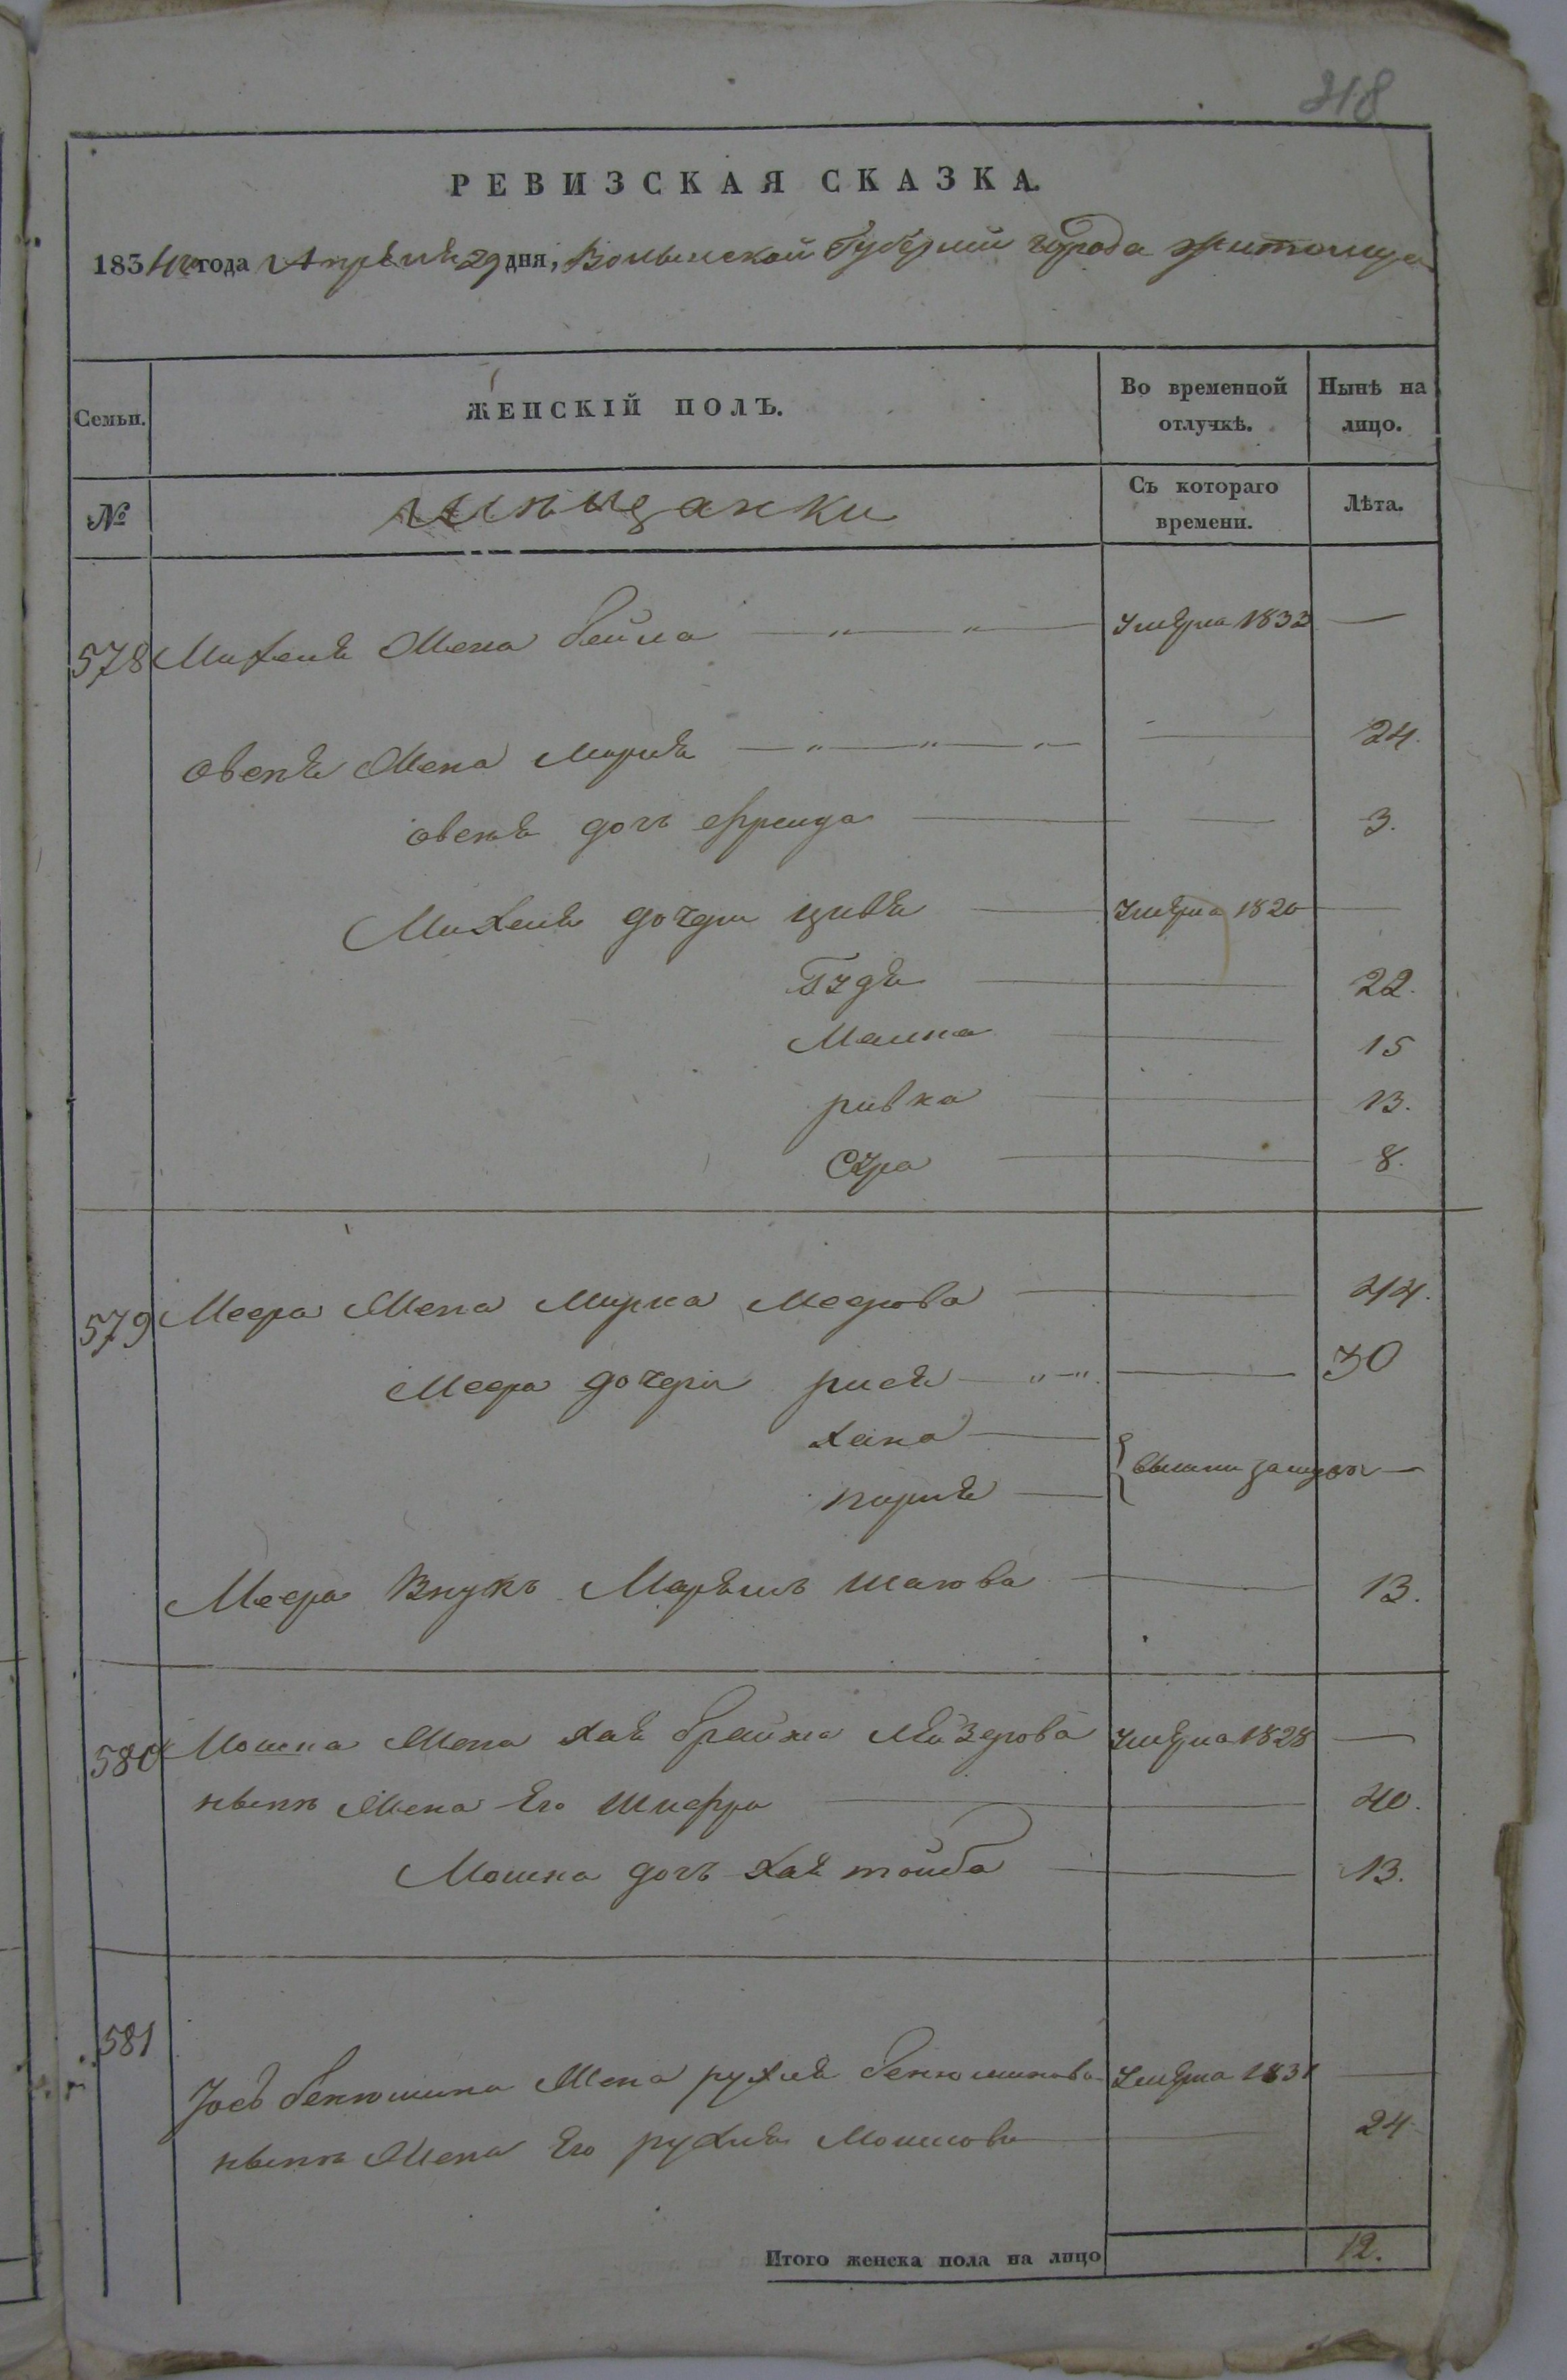 318
РЕВИЗСКАЯ СКАЗКА.
1834го года Апрѣля 29 дня, Волынской Губерніи города Житомира
Семьи. ЖЕНСКІЙ ПОЛЪ. Во временной отлучкѣ. Нынѣ на лицо.
№ Мѣщанки Съ котораго времени. Лѣта.
578 Михеля Жена бейла — „ — „ — Умерла 1833 —
Овсея Жена Мирля — „ — „ — „ — — 24.
Овсея дочь Фрейда — — 3.
Михеля дочери Цивя — Умерла 1820 —
Гудя — — 22.
Малка — — 15
ривка — — 13.
Сура — — 8.
579 Меера Жена Мирка Меерова — — 44.
Меера дочери рися — „ — „ — 30
Хана — { вышли замужъ —
перля —
Меера Внука Маръямъ — 13.
580 Мошка Жена Хая брайна Лейзерова Умерла 1828 —
нынѣ Жена Его Шифра — — 40.
Мошка дочь Хая тойба — — 13.
581
Жена рухля бенюминова Умерла 1831 —
нынѣ Жена Его рухля Мошкова — — 24
Итого женска пола на лицо 12.